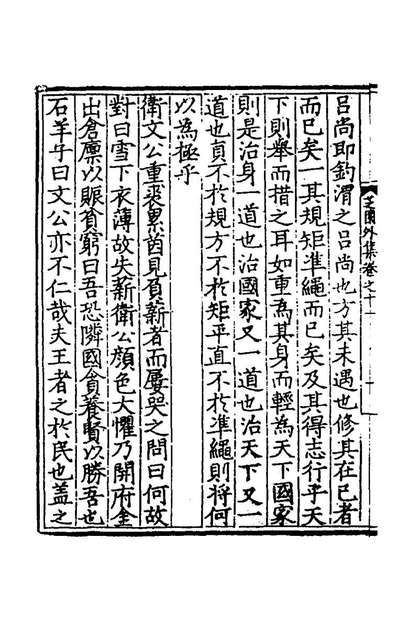 呂尚即釣渭之呂尚也方其未遇也修其在已者
而已矣一其規矩準繩而已矣及其得志行乎天
下則舉而措之耳如重為其身而輕為天下國家
則是治身一道也治國家又一道也治天下又一
道也貟不於規方不於矩平直不於準繩則将何
以為極乎
衛文公重裘累茵見負薪者而屢哭之問曰何故
對曰雪下衣薄故失薪衛公顔色大懼乃開府金
出倉廩以賑貧窮曰吾恐隣國貪養賢以勝吾也
石羊子曰文公亦不仁哉夫王者之於民也盖之
芝園外集卷之十一